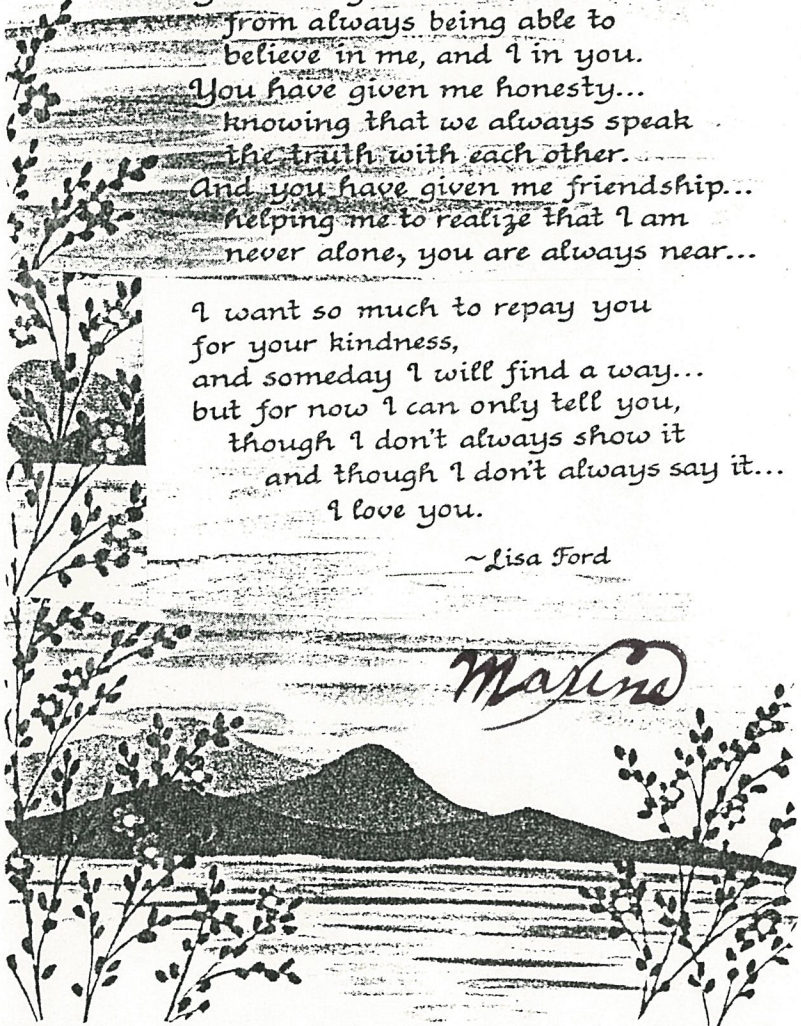 from always being able to
believe in me, and I in you.
You have given me honesty...
knowing that we always speak
the truth with each other.
And you have given me friendship...
helping me to realize that I am
never alone, you are always near...
I want so much to repay you
for your kindness,
and someday I will find a way...
but for now I can only tell you,
though I don't always show it
and though I don't always say it...
I love you.
~Lisa Ford
Maxine